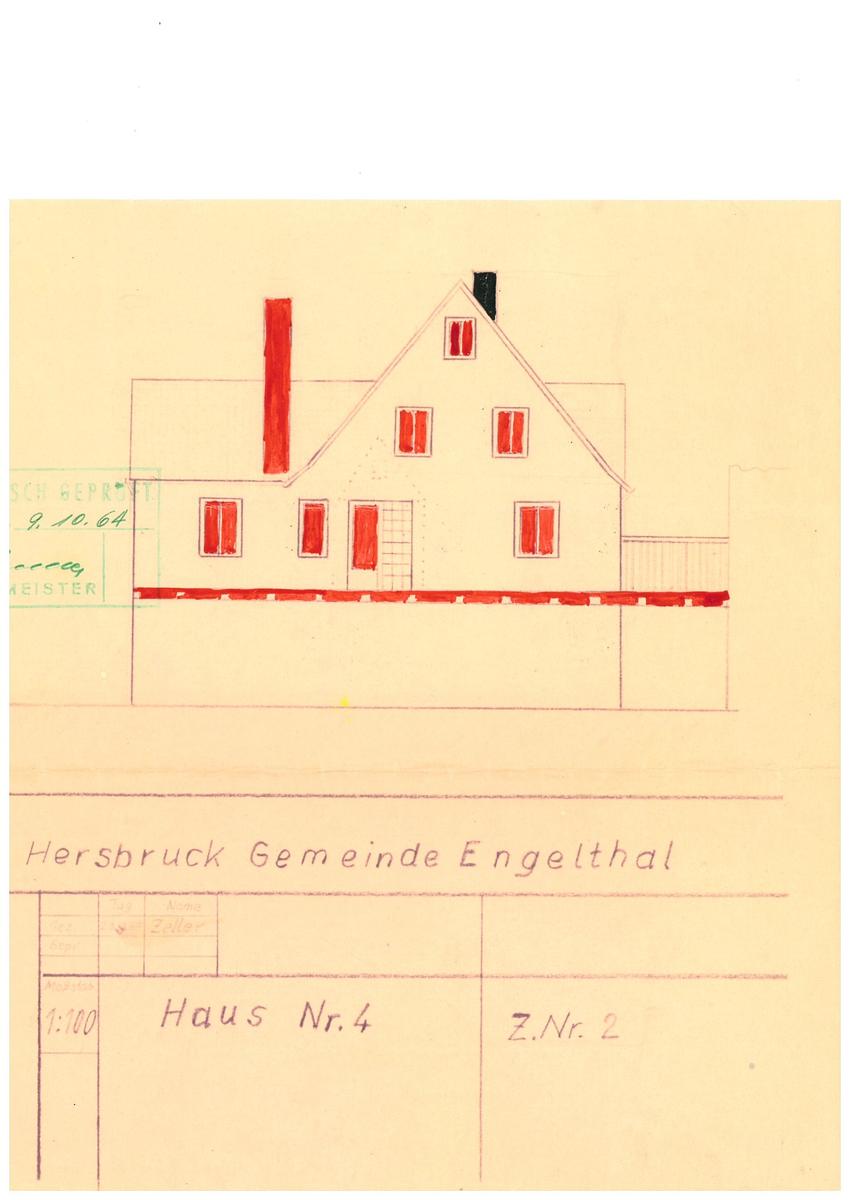 SCH GEPRÜFT
9.10.64
MEISTER
Hersbruck Gemeinde Engelthal
Tag Name
Gez. Zeller
Gepr.
Maßstab
1:100
Haus Nr. 4
Z.Nr. 2